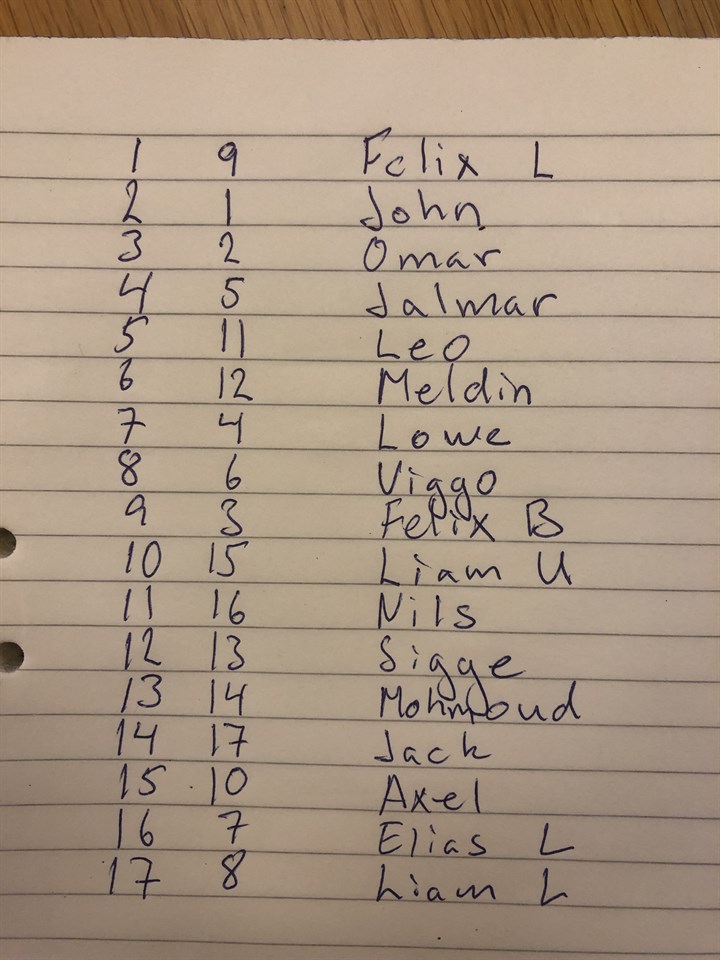 1 9 Felix L
2 1 John
3 2 Omar
4 5 Jalmar
5 11 Leo
6 12 Meldin
7 4 Lowe
8 6 Viggo
9 3 Felix B
10 15 Liam U
11 16 Nils
12 13 Sigge
13 14 Mohmoud
14 17 Jack
15 10 Axel
16 7 Elias L
17 8 Liam L